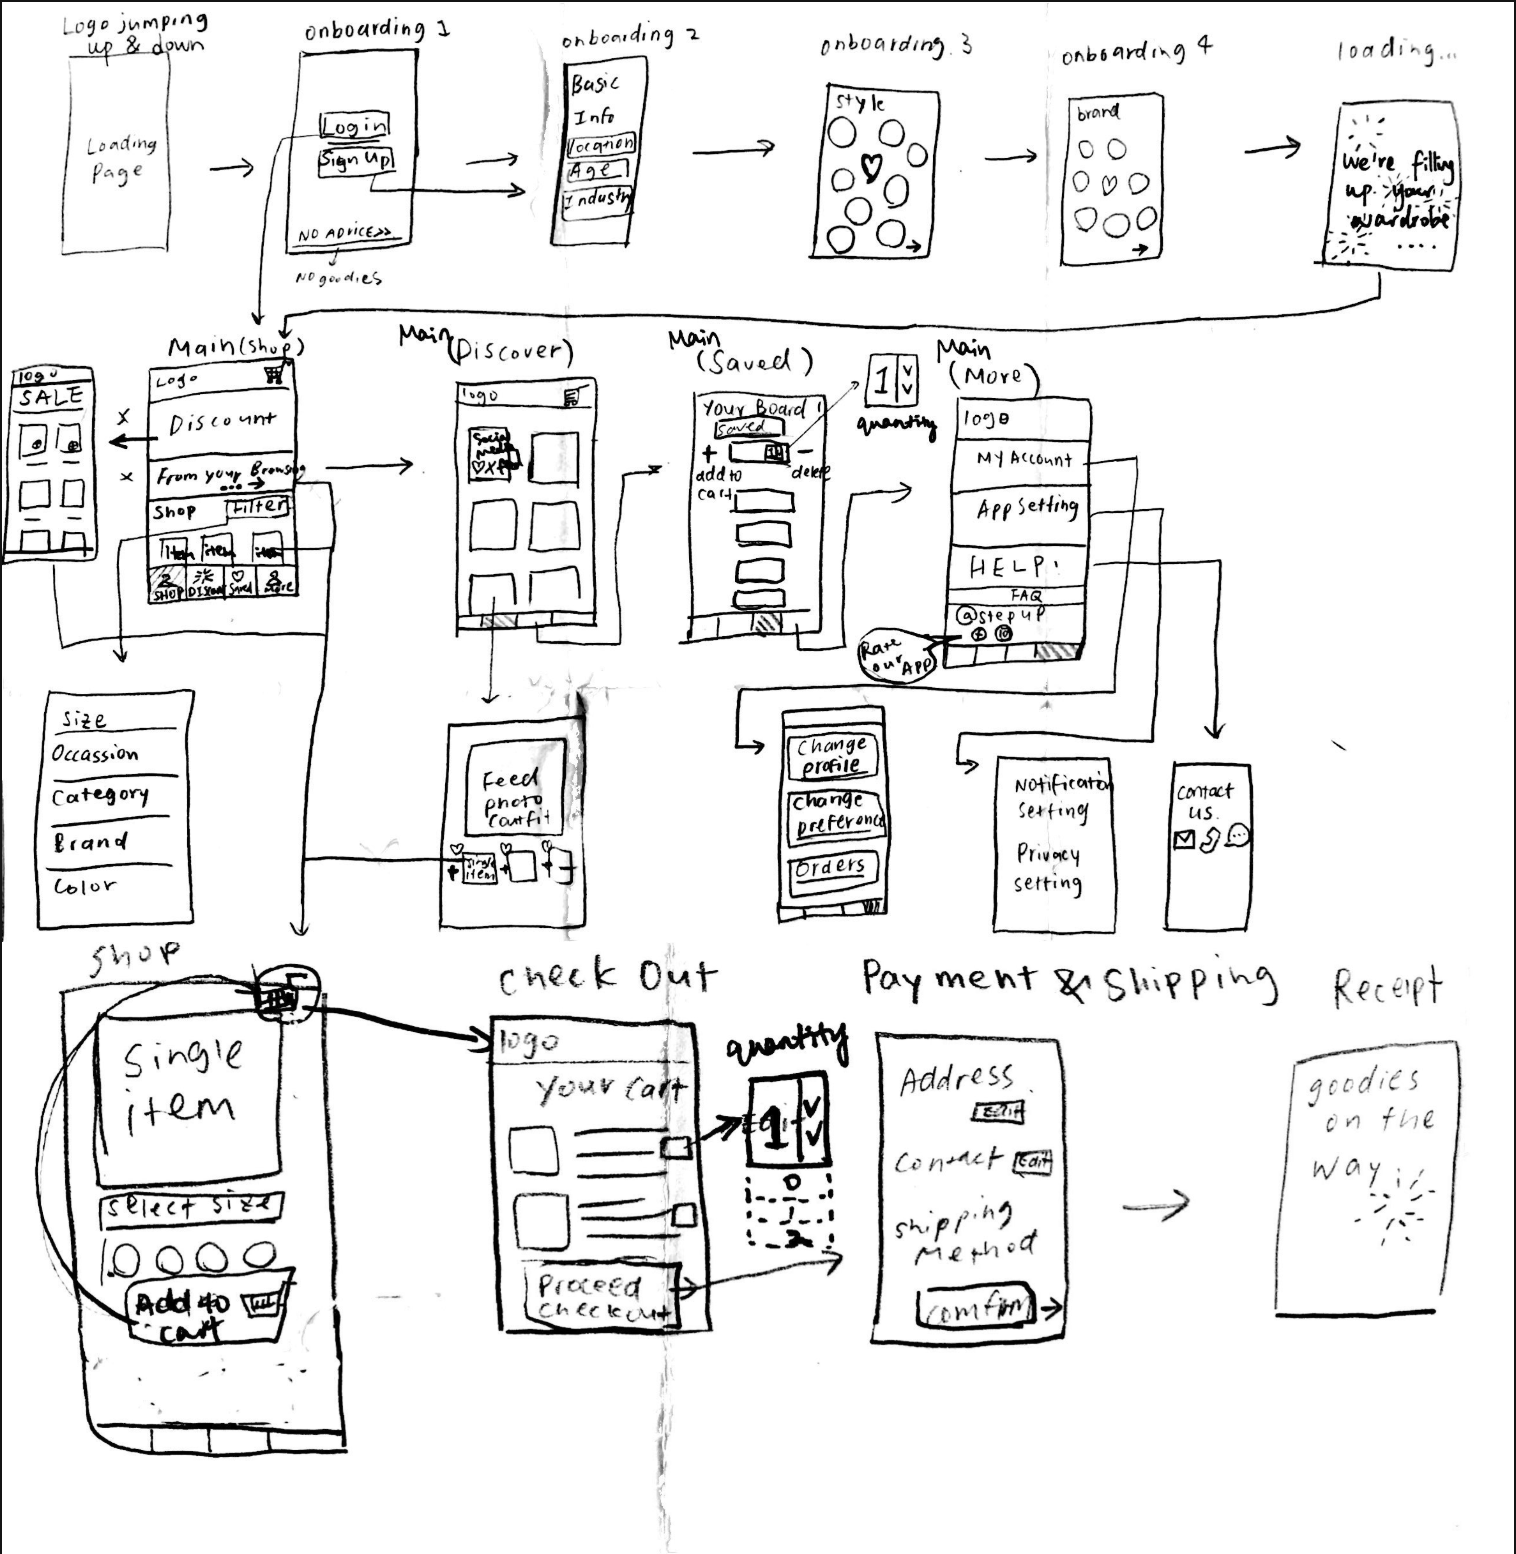 Logo jumping
up & down
Loading
Page
onboarding 1
Login
Sign Up
NO ADVICE>>
NO goodies
onboarding 2
Basic
Info
location
Age
Industry
onboarding 3
style
onboarding 4
brand
loading...
we're filling
up your
wardrobe
....
logo
SALE
Main (shop)
Logo
Discount
From your Browsing
...
Shop
Filter
item
item
item
SHOP
Saved
More
Main
(Discover)
logo
Social
media
Main
(Saved)
Your Board
Saved
+
add to
cart
-
delete
1
quantity
Main
(More)
logo
My Account
App Setting
HELP!
FAQ
@stepup
Rate
our APP
Size
Occassion
Category
Brand
Color
Feed
photo
(outfit
single
item
Change
profile
Change
preference
Orders
Notification
setting
Privacy
setting
contact
us.
Shop
Single
item
select size
Add to
cart
Check Out
logo
Your cart
Proceed
checkout
quantity
Edit
1
0
1
2
Payment & Shipping
Address
Edit
Contact
Edit
shipping
Method
comfirm
Receipt
goodies
on the
way